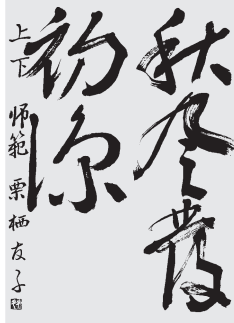 秋風發
初涼
上下 師範 栗栖友子